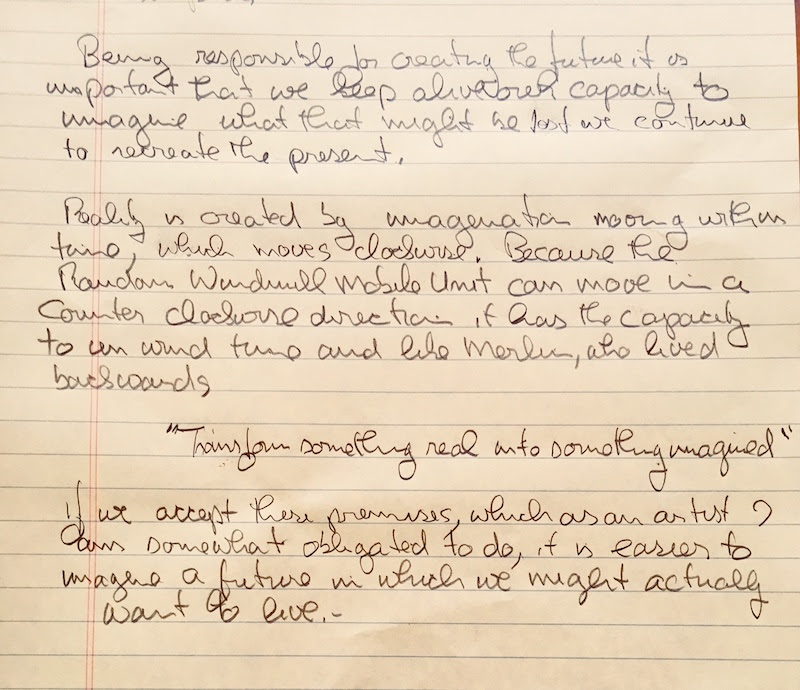 Being responsible for creating the future it is
important that we keep alive our capacity to
imagine what that might be lest we continue
to recreate the present.
Reality is created by imagination moving within
time, which moves clockwise. Because the
Random Windmill Mobile Unit can move in a
Counter clockwise direction it has the capacity
to un wind time and like Merlin, who lived
backwards,
"Transform something real into something imagined"
if we accept these premises, which as an artist I
am somewhat obligated to do, it is easier to
imagine a future in which we might actually
want to live.-